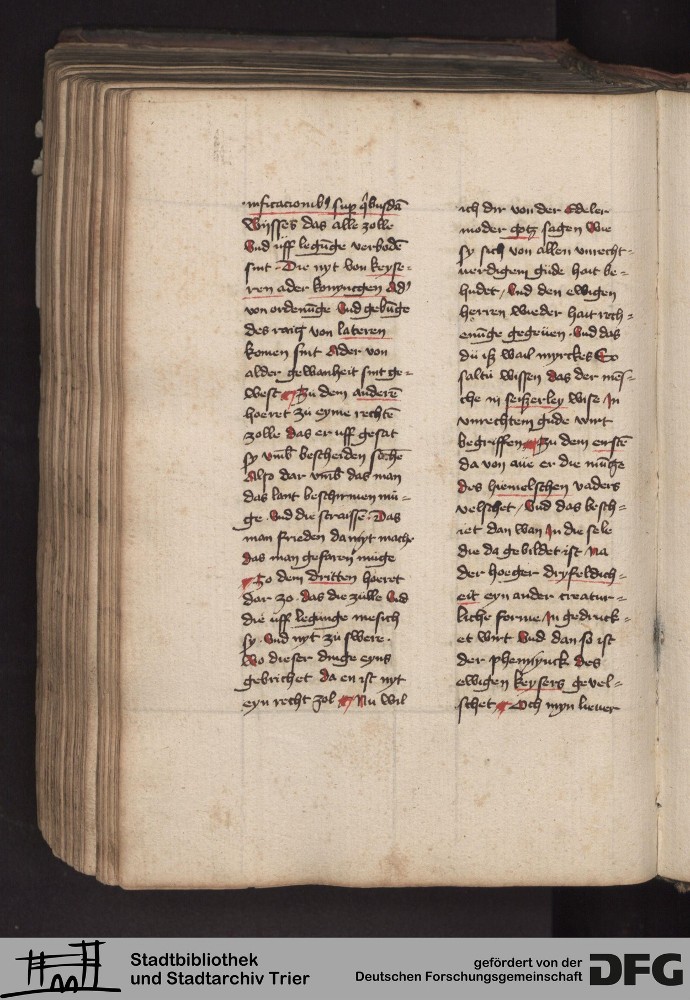 nificacionibꝰ sup qͥbusdā
Wijsses das alle zolle
Vnd uff legūge verbodē
sint. Die nyt von keyse-
ren ader konyncgen Adʼ
von ordenūge Vnd gebūge
des von lateren
komen sint Ader von
alder gewanheit sint ge-
west Zu dem anderē
hoeret zu eyme rechtē
zolle das er uff gesat
sy vmb bescheiden sache
Also dar vmb das man
das lant beschirmen mu-
ge. Vnd die straissē. Das
man frieden da myt mache
das man gefaren muge
Zo dem dritten hoeret
dar zo. das die zulle Vnd
die uff legunge messich
sy. Vnd nyt zu swere.
Wo dieser dinge eyns
gebrichet da en ist nyt
eyn recht zol Nu wil
ich dir von der Edeler
moder gotz sagen Wie
sy sich von allen vnrecht-
uerdigem gude hait be-
hudet / Vnd den ewigen
herren wieder hait rech-
enūge gegeuen. Vnd das
du iß wail myrckes So
saltu wissen das der mēs-
che in seißerley wise In
vnrechtem gude wirt
begriffen Zu dem eirstē
da von aue er die mūtze
des hiemelschen vaders
velschet / Vnd das besch-
iet dan wan In die sele
die da gebildet ist Na
der hoeger dryfeldich-
eit eyn ander creatur-
liche forme / In gedruck-
et wirt Vnd dan so ist
der phennynck des
ewigen keysers gevel-
schet Och myn lieuer
Stadtbibliothek
und Stadtarchiv Trier
gefördert von der
Deutschen Forschungsgemeinschaft
DFG